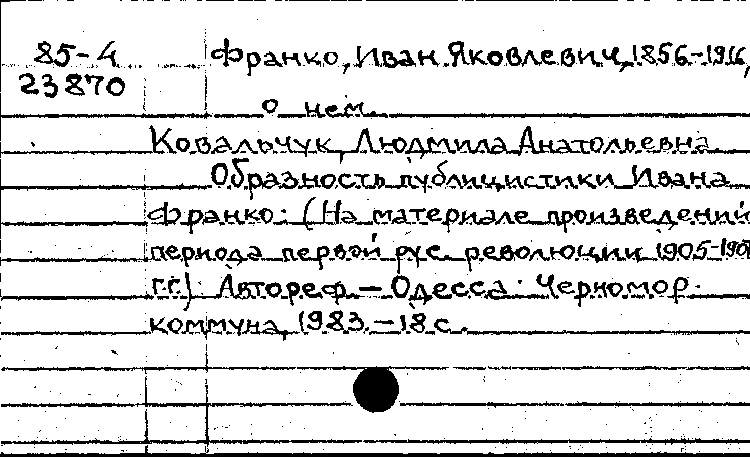 85-4 Франко, Иван Яковлевич, 1856-1916,
23870
о нем.
Ковальчук, Людмила Анатольевна
Образность публицистики Ивана
Франко: (На материале произведений
периода первой рус. революции 1905-190
г.г.). Автореф. — Одесса: Черномор.
коммуна, 1983. — 18 с.